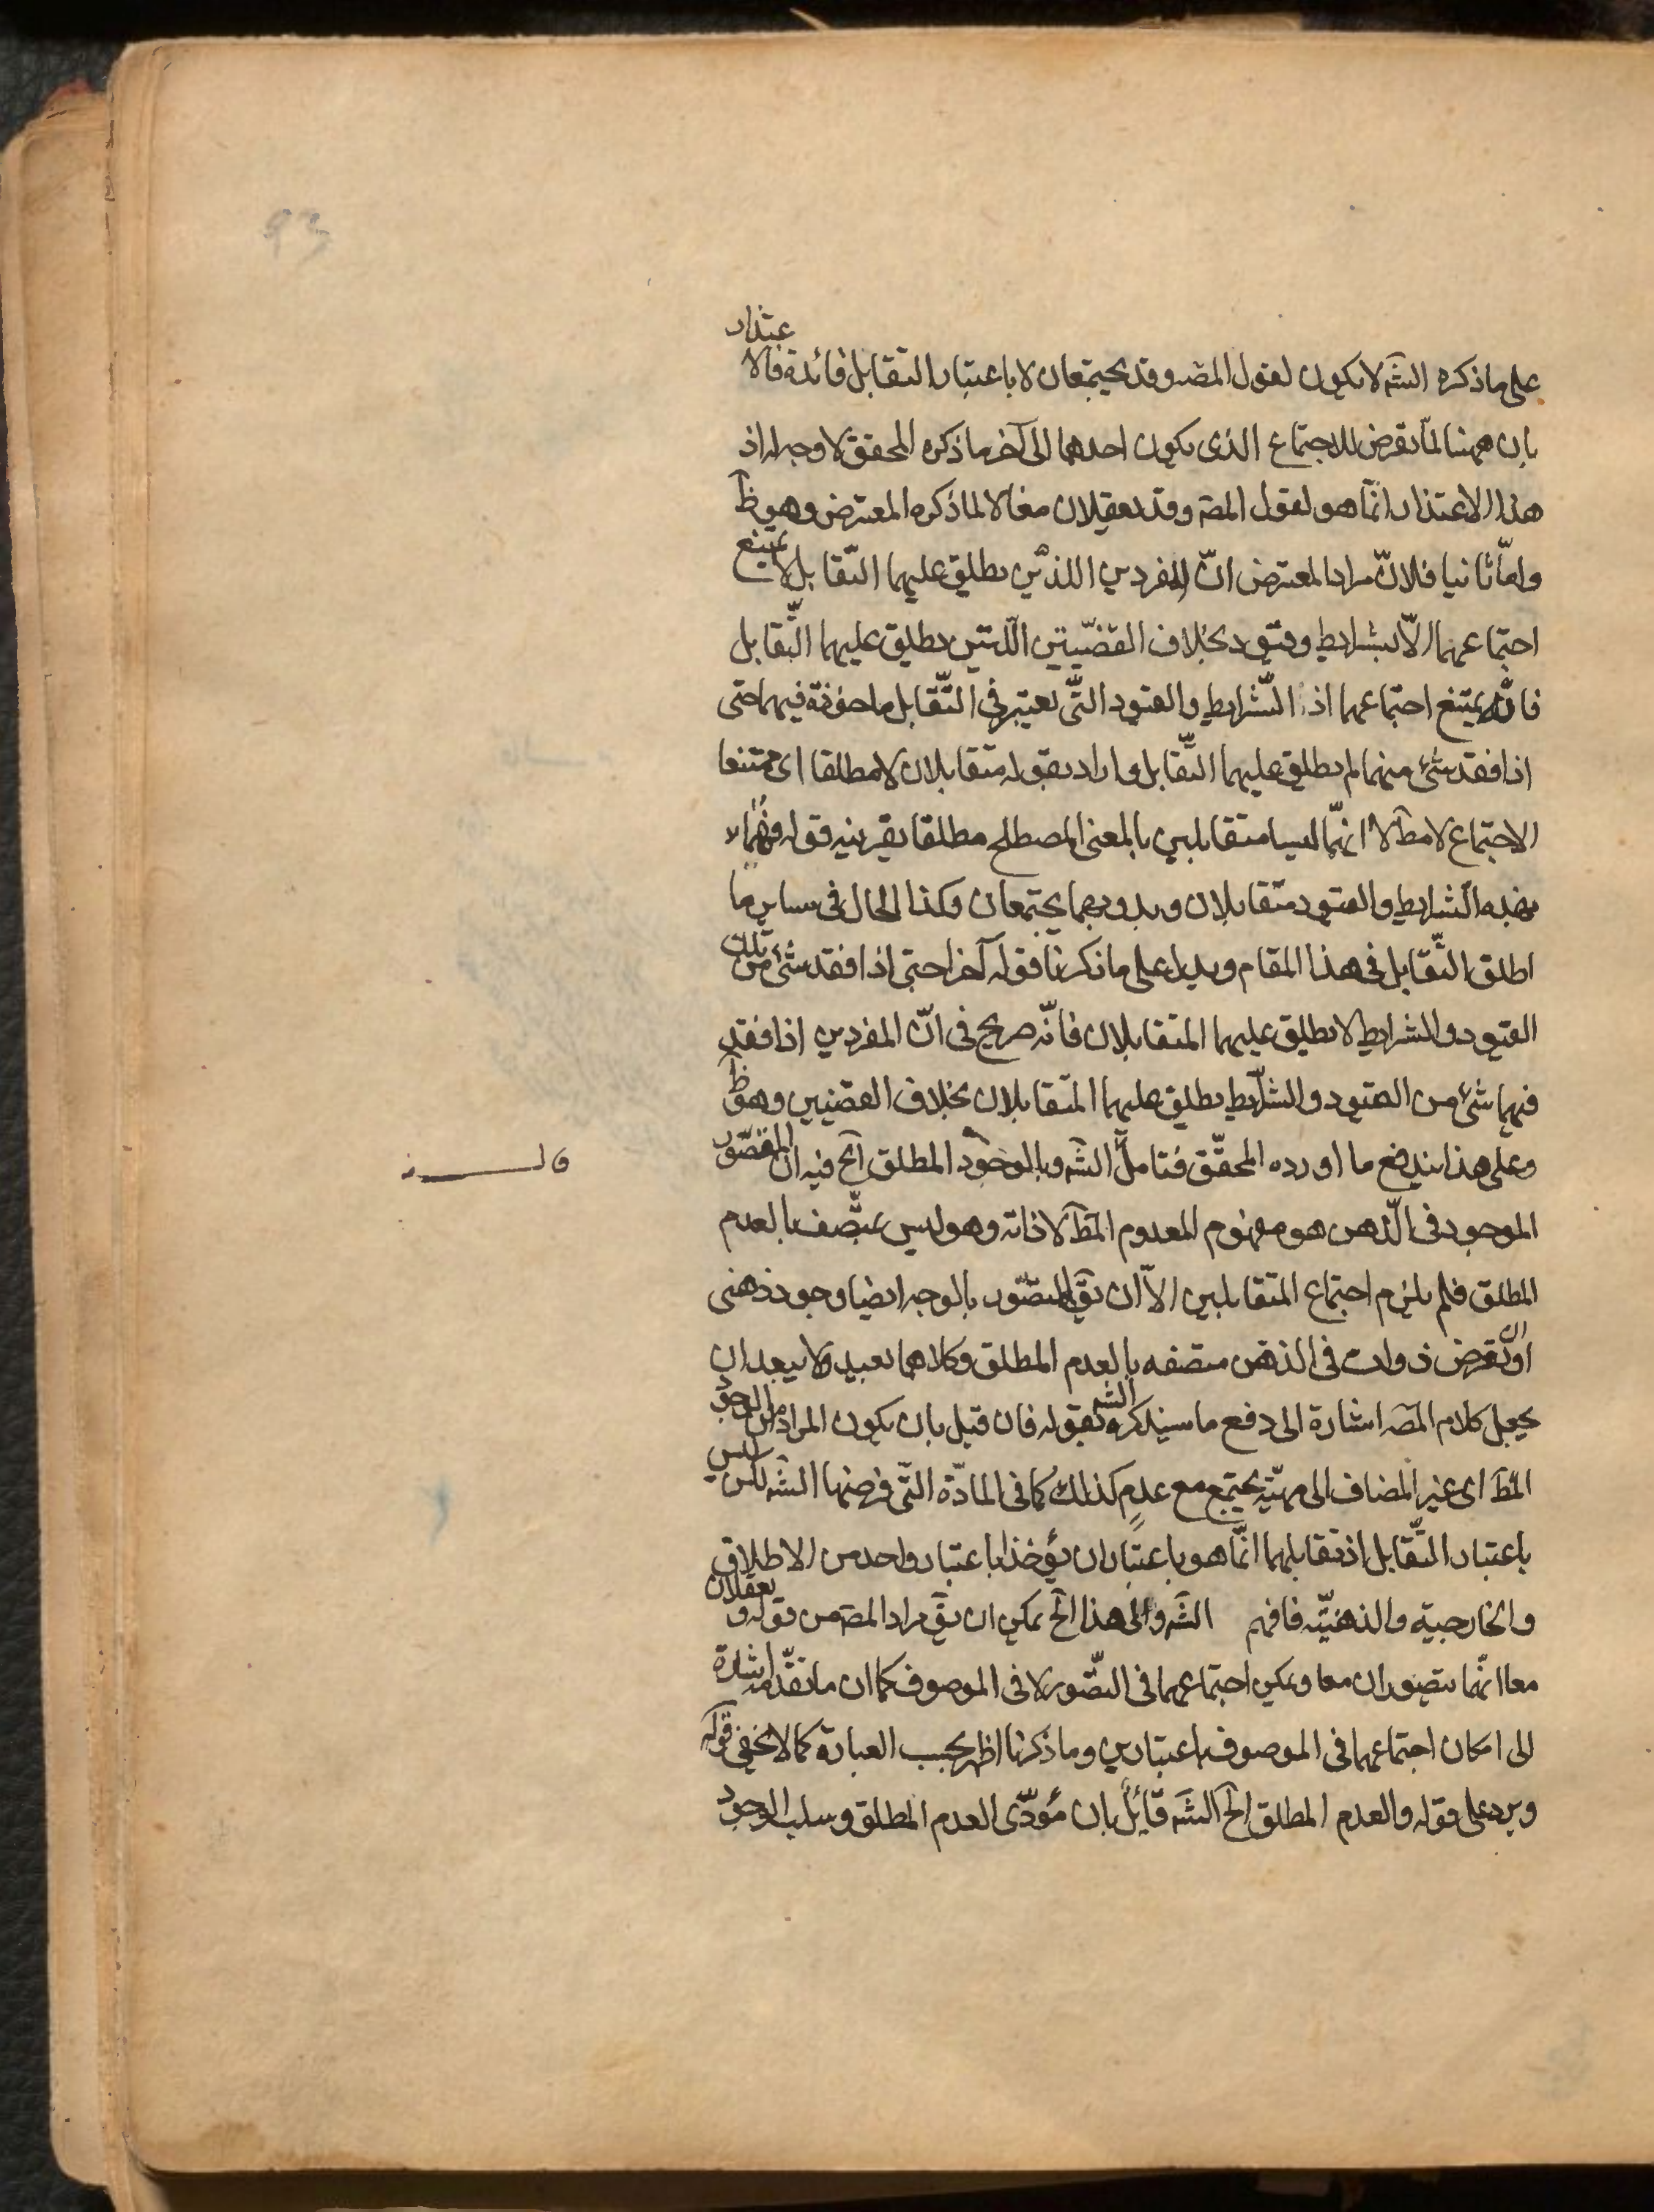 93
على ما ذكره الشه لا يكون لقول المصه وقد يجتمعان لا باعتبار التقابل فائدة فالاعتذار
بان ههنا لما تعرض للاجتماع الذى يكون احدهما الى آخر ما ذكره المحقق لا وجه له اذ
هذا الاعتذار انّما هو لقول المصه وقد يعقلان معا لا لما ذكره المعترض وهو ظ
وامّا ثانيا فلانّ مراد المعترض انّ المفردين اللذين يطلق عليهما التّقابل لا يمتنع
اجتماعهما الاّ بشرايط وقيود بخلاف القضيّتين اللّتين يطلق عليهما التّقابل
فانّه يمتنع اجتماعهما اذ الشّرايط والقيود التّى يعتبر فى التّقابل ماخوذة فيهما حتى
اذا فقد شئ منهما لم يطلق عليهما التّقابل واراد بقوله متقابلان لا مطلقا اى ممتنعا
الاجتماع لا مط لا انهّما ليسا متقابلين بالمعنى المصطلح مطلقا بقرينه قوله فهما
بهذه الشرايط والقيود متقابلان وبدونهما يجتمعان وكذا الحال فى ساير ما
اطلق التّقابل فى هذا المقام ويدل على ما ذكرنا قوله آخرا حتى اذا فقد شئ من تلك
القيود والشرايط لا يطلق عليهما المتقابلان فانّه صريح فى انّ المفردين اذا فقد
فيهما شئ من القيود والشرايط يطلق عليهما المتقابلان بخلاف القضيتين وهو ظ
وعلى هذا يندفع ما اورده المحقّق فتامل الشه وبالموجود المطلق آلخ فيه ان المتصّور
قال
الموجود فى الذّهن هو مفهوم المعدوم المط لا ذاته وهو ليس بمتّصف بالعدم
المطلق فلم يلزم اجتماع المتقابلين الاّ ان يق المتصّور بالوجه ايضا وجود ذهنى
او ان يفرض ذوات فى الذهن متصفه بالعدم المطلق وكلاهما بعيد ولا يبعد ان
يجعل كلام المصه اشارة الى دفع ما سيذكره الشه بقوله فان قيل بان يكون المراد ان الوجود
المط اى غير المضاف الى مهيّة يجتمع مع عدم كذلك كما فى المادّة التّى فرضها الشه لكن ليس
باعتبار التّقابل اذ تقابلهما انّما هو باعتبار ان يؤخذا باعتبار واحد من الاطلاق
والخارجية والذهنيّه فافهم الشه والى هذا الخ يمكن ان يق مراد المصه من قوله ويعقلان
معا انّهما يتصوران معا ويمكن اجتماعهما فى التصّور لا فى الموصوف كما ان ما تقدّمه اشارة
الى امكان اجتماعهما فى الموصوف باعتبارين وما ذكرنا اظهر بحسب العبارة كما لا يخفى قوله
ويرد على قوله والعدم المطلق الخ الشه قائل بان مؤدّى العدم المطلق وسلب الوجود